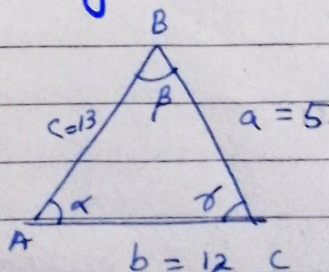 B
β
c=13
a = 5
α
γ
A
b = 12
C